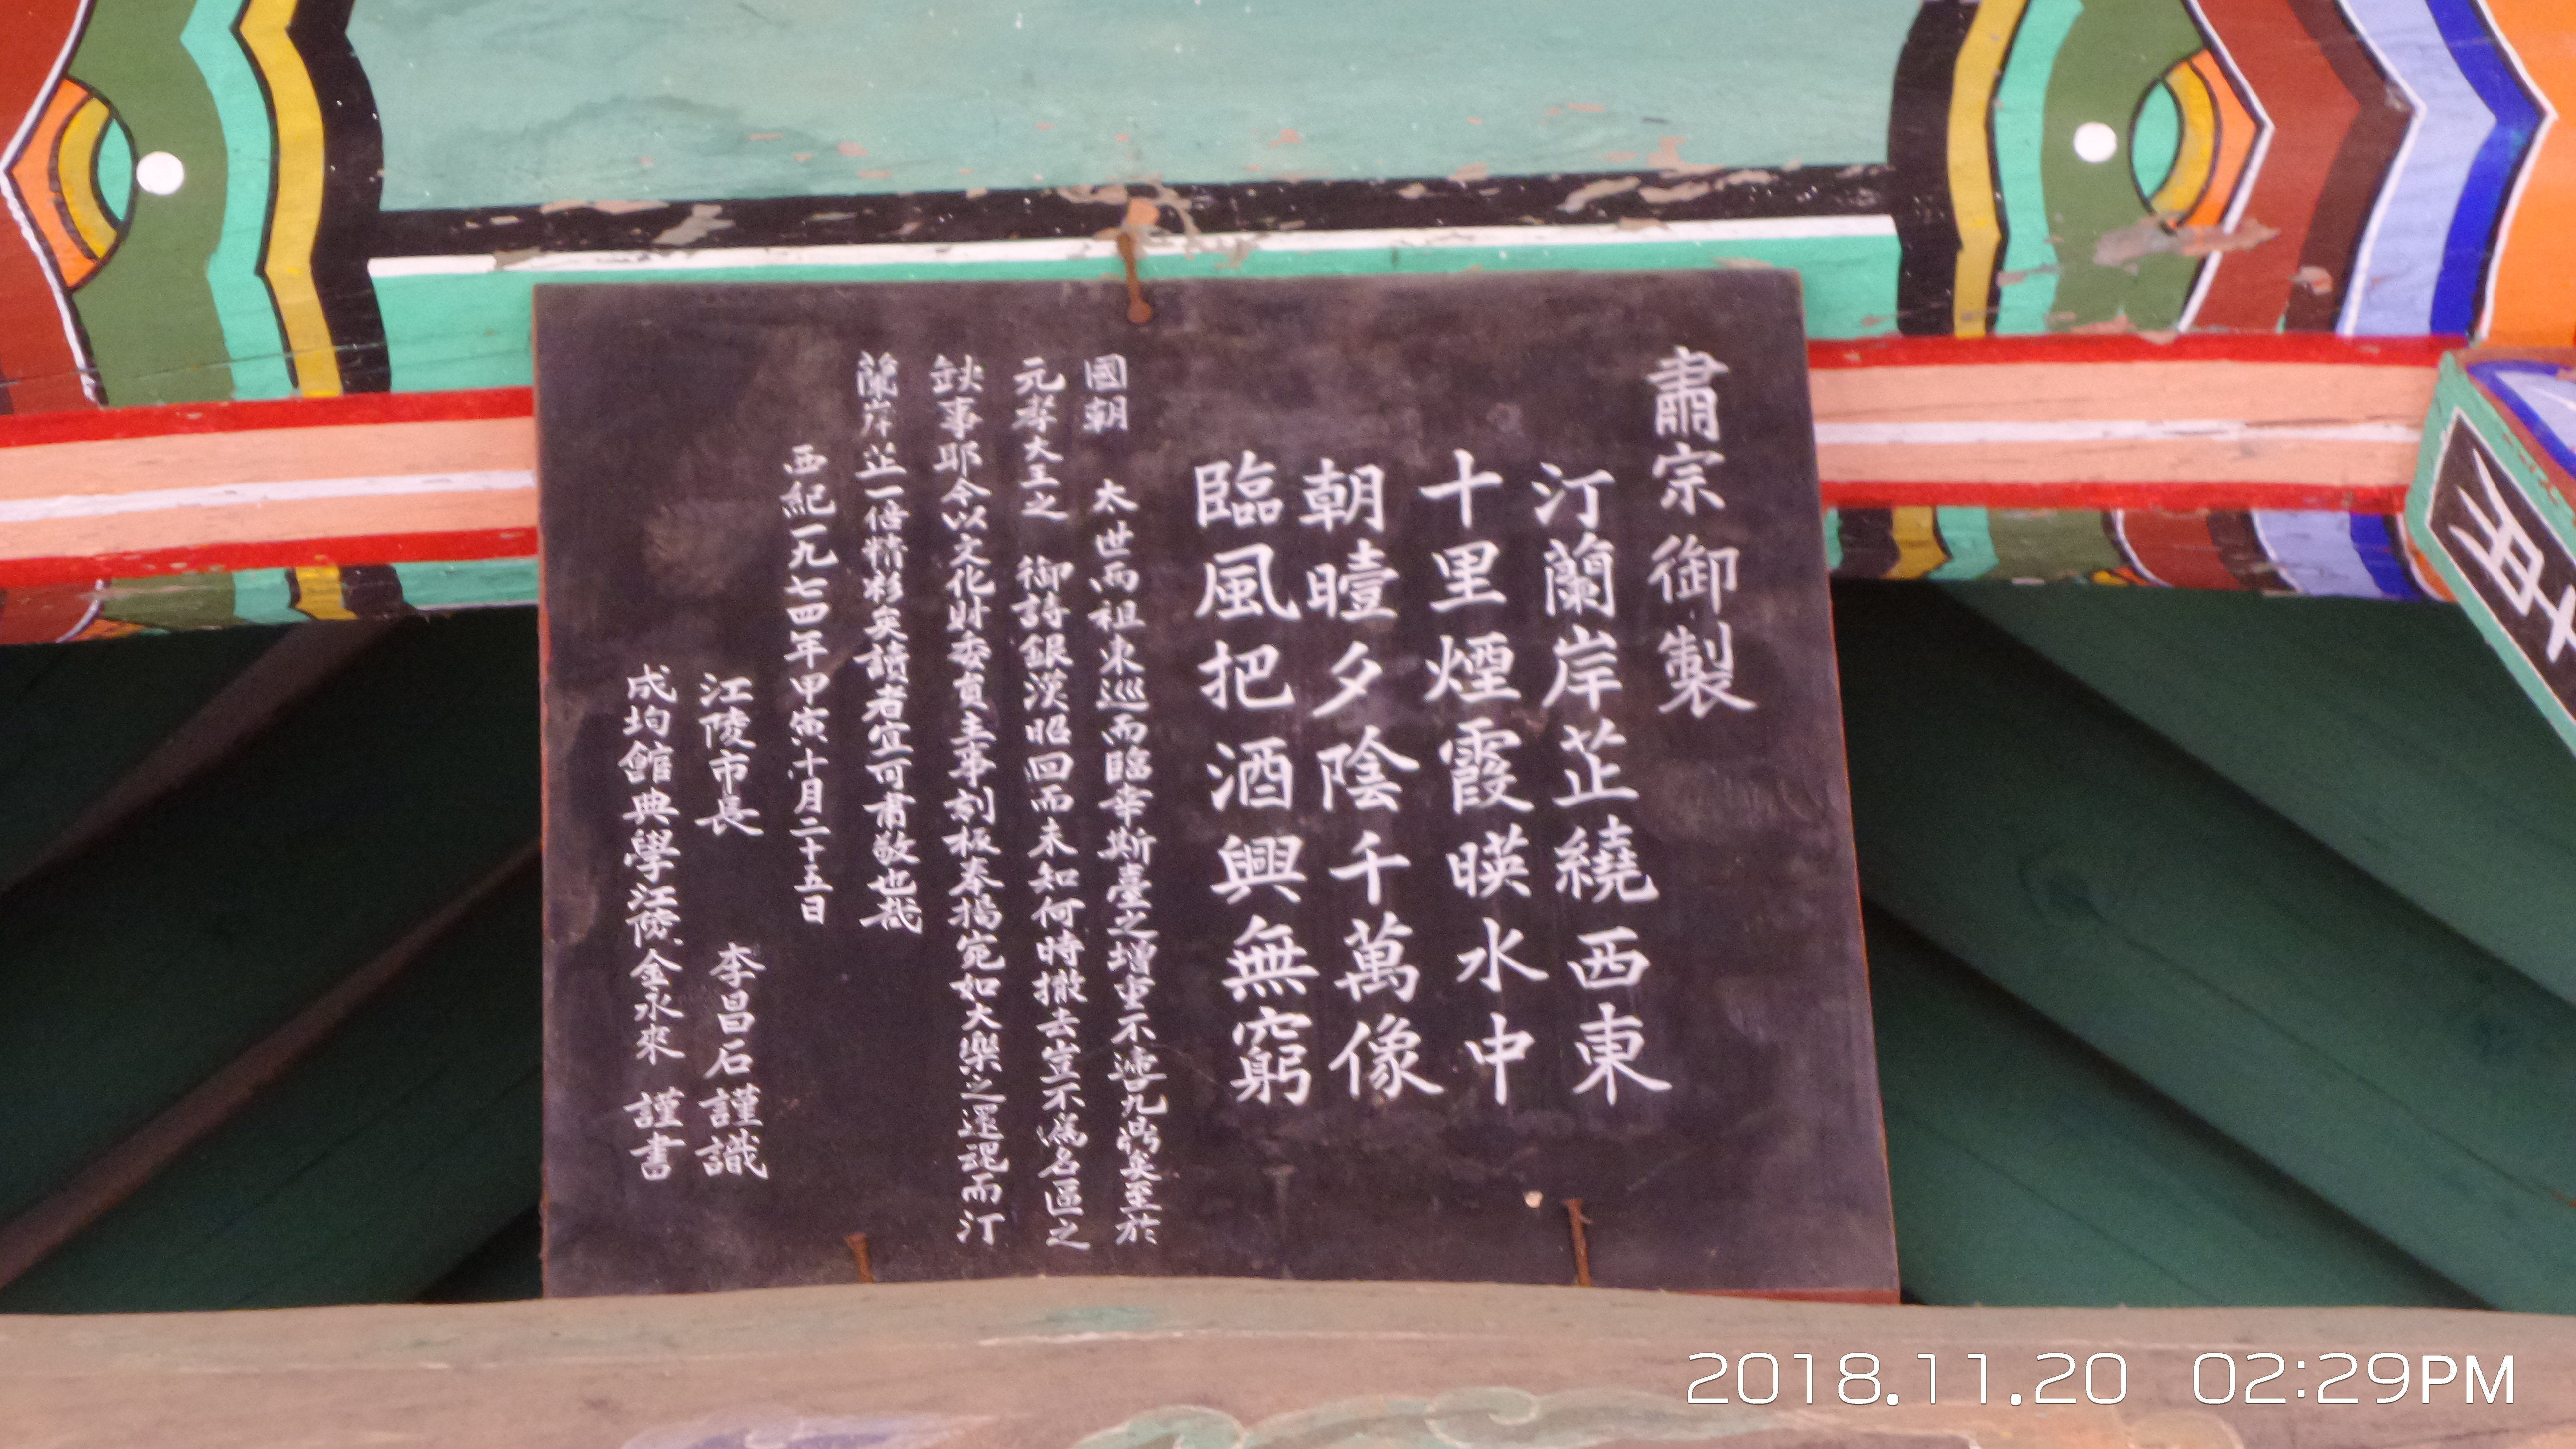 肅宗御製
汀蘭岸芷繞西東
十里煙霞暎水中
朝曀夕陰千萬像
臨風把酒興無窮
國朝 太世兩祖東巡而臨幸斯臺之增重不啻九鼎矣至於
元孝大王之 御詩銀漢昭回而未知何時撤去豈不爲名區之
缺事耶今以文化財委員主事刻板奉揭宛如大樂之還混而汀
蘭岸芷一倍精彩矣讀者宜可肅敬也哉
西紀一九七四年甲寅十月二十五日
江陵市長 李昌石謹識
成均館典學江陵金永來 謹書
2018.11.20 02:29PM